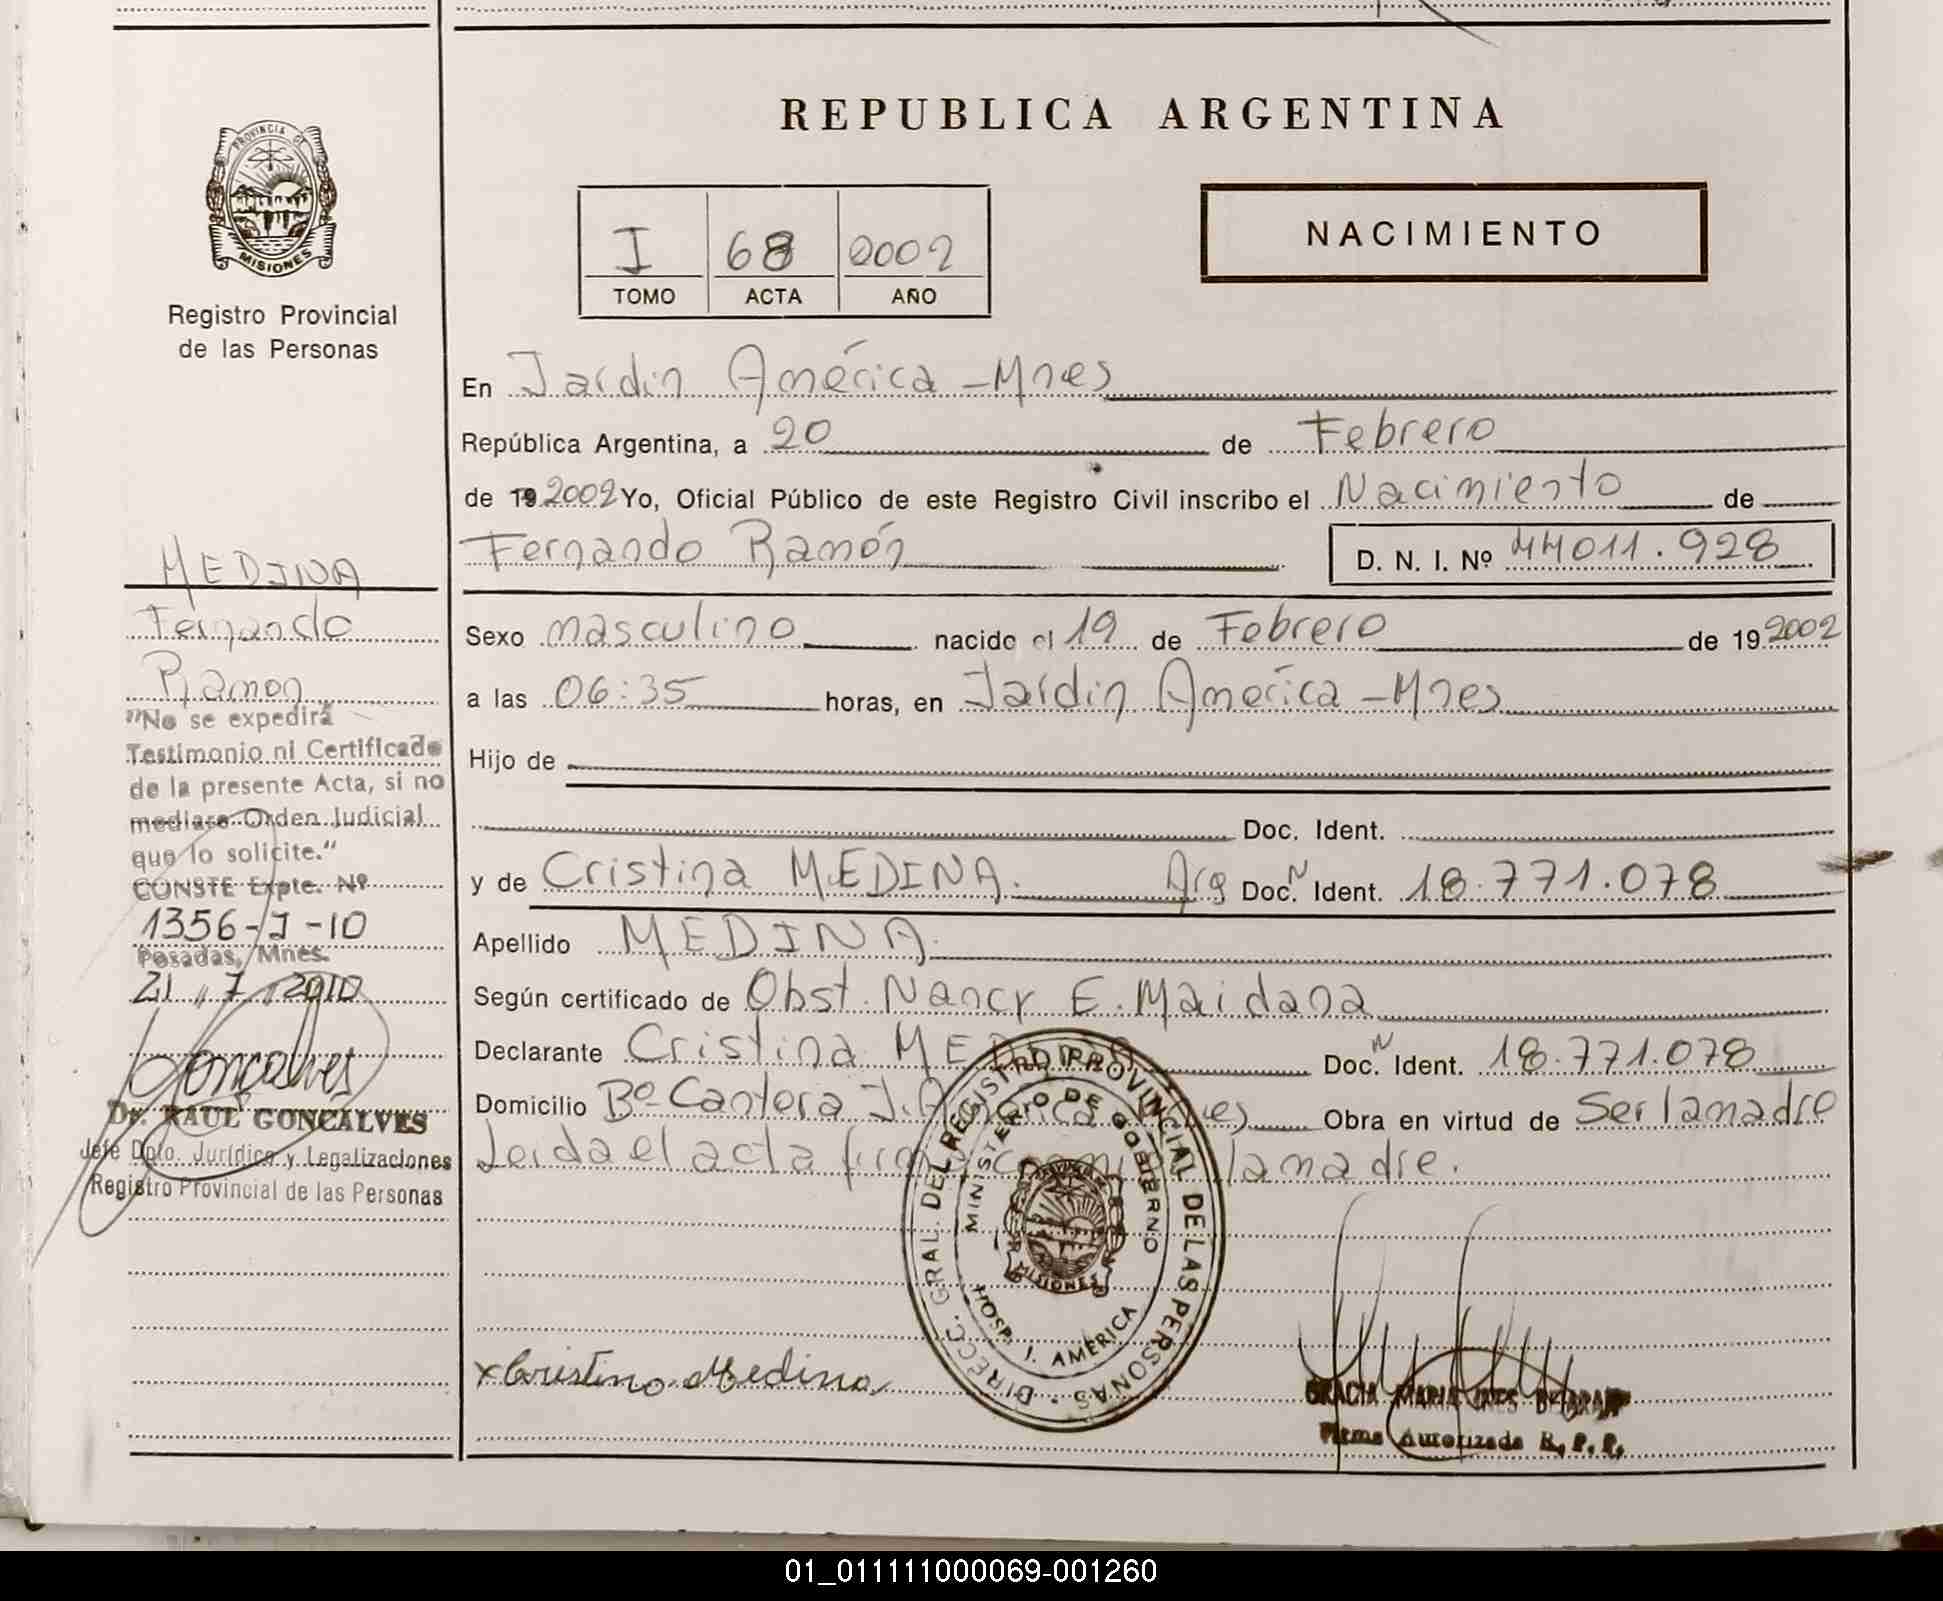 REPUBLICA ARGENTINA
PROVINCIA DE
MISIONES
Registro Provincial
de las Personas
I 68 2002
TOMO ACTA AÑO
NACIMIENTO
En Jardin América - Mnes
República Argentina, a 20 de Febrero
de 19 2002 Yo, Oficial Público de este Registro Civil inscribo el Nacimiento de
Fernando Ramón D. N. I. Nº 44011.928
Sexo masculino nacido el 19 de Febrero de 19 2002
a las 06:35 horas, en Jardin América - Mnes
Hijo de
Doc. Ident.
y de Cristina MEDINA. Arg Doc. N Ident. 18.771.078
Apellido MEDINA.
Según certificado de Obst. Nancy E. Maidana
Declarante Cristina MEDINA Doc. N Ident. 18.771.078
Domicilio Bº Cantera J. América Mnes Obra en virtud de Ser la madre
Leida el acta firma la madre.
MEDINA
Fernando
Ramon
"No se expedirá
Testimonio ni Certificado
de la presente Acta, si no
mediare Orden Judicial
que lo solicite."
CONSTE Expte. Nº
1356-J-10
Posadas, Mnes.
21, 7, 2010
Gonçalves
Dr. RAUL GONCALVES
Jefe Dpto. Jurídico y Legalizaciones
Registro Provincial de las Personas
DIRECC. GRAL. DEL REGISTRO PROVINCIAL DE LAS PERSONAS
MINISTERIO DE GOBIERNO
MISIONES
HOSP. J. AMERICA
x Cristina Medina
GRACIA MARIA INES
Firma Autorizada R. P. P.
01_011111000069-001260